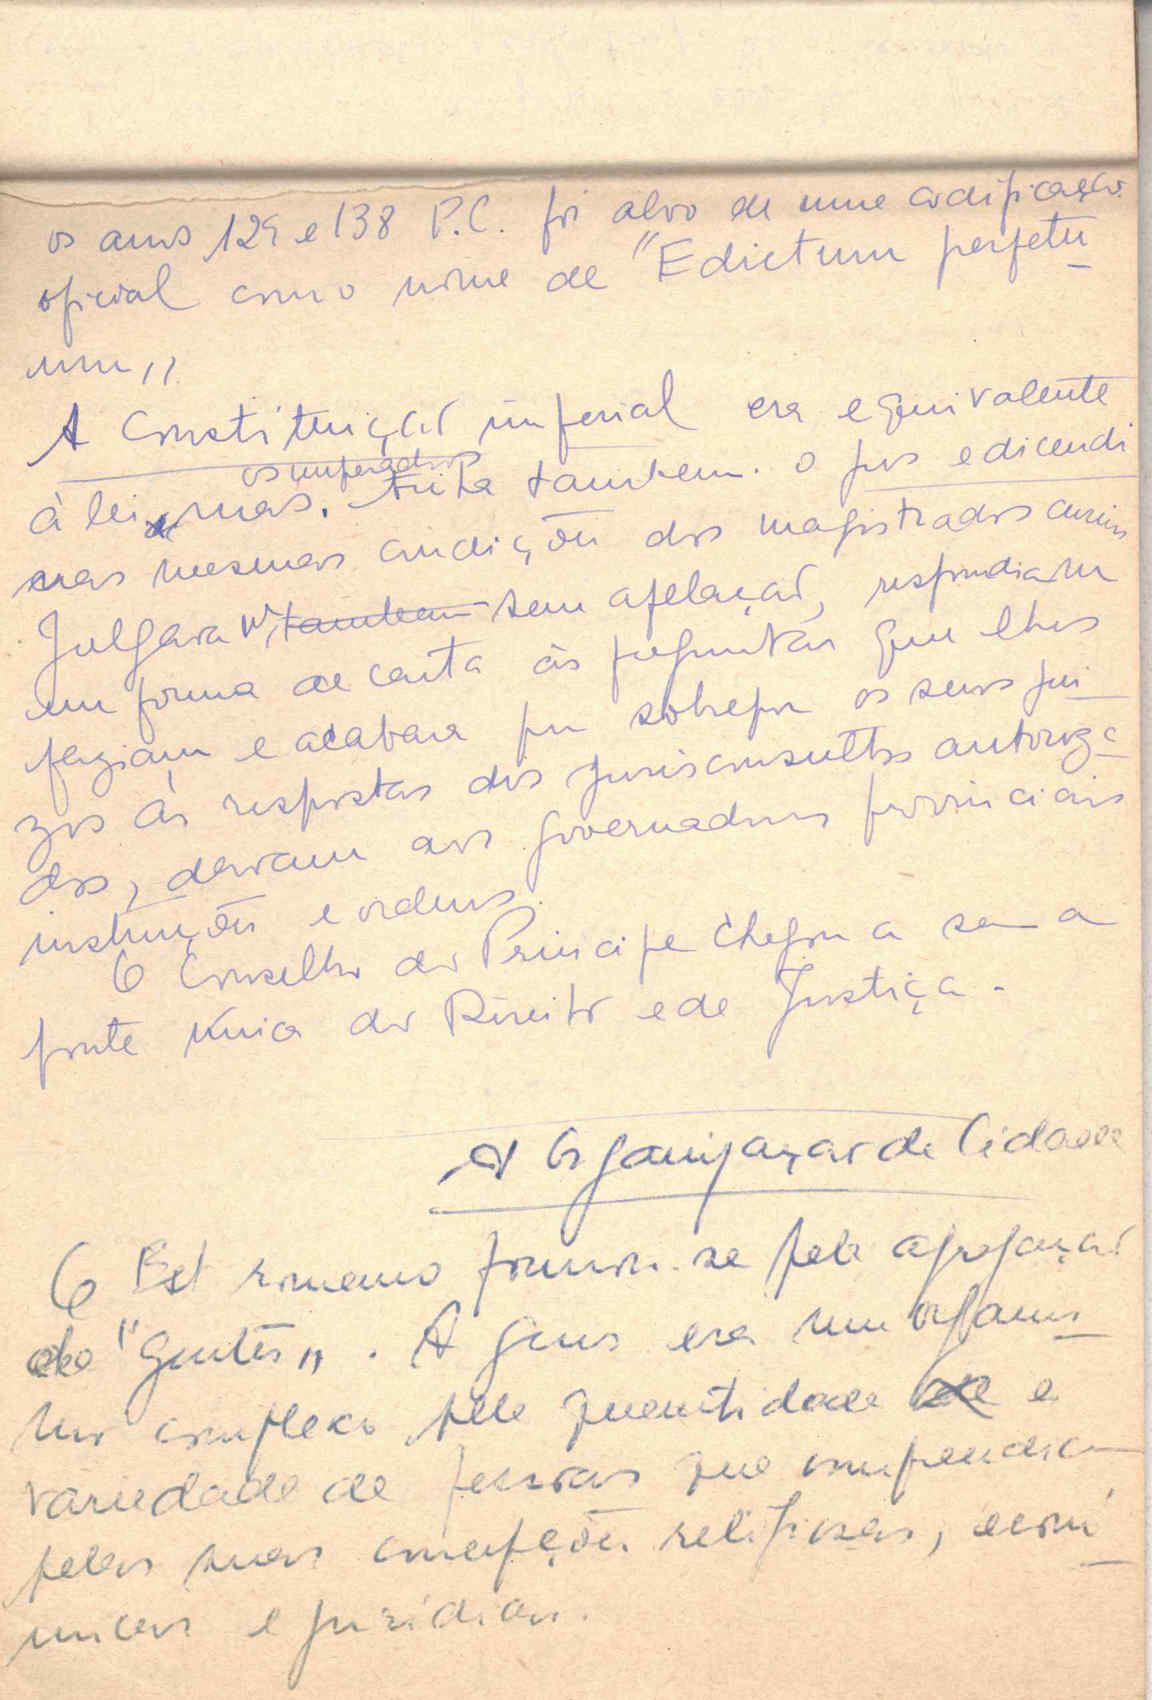 os anos 129 e 138 P.C. foi alvo de uma codificação
oficial com o nome de "Edictum perpetu
um"
A Constituição imperial era equivalente
os imperadores
à lei mas. tinha tambem. o jus edicendi
nas mesmas condições dos magistrados curuis
Julgavam, tambem sem apelação, respondiam
em forma de carta às perguntas que lhes
faziam e acabara por sobrepor os seus juí
zos às respostas dos jurisconsultos autoriza
dos, davam aos governadores provinciais
instruções e ordens.
O Conselho do Principe chegou a ser a
fonte única do Direito e de Justiça.
A Organização da Cidade
O Est romano formou-se pela agregação
de "Gentes". A gens era um organis
mo complexo pela quantidade e
variedade de pessoas que compreendia
pelas suas concepções religiosas, econó
micas e jurídicas.